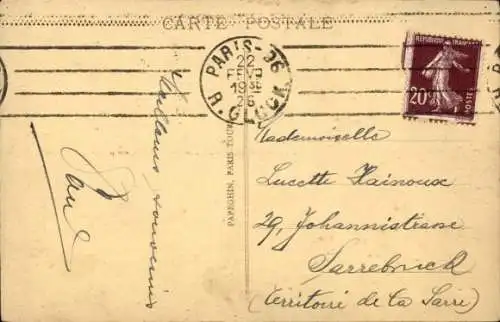 CARTE POSTALE
PARIS-96
22
FEVR
19 35
26
R. GLUCK
RÉPUBLIQUE FRANÇAISE
20c
POSTES
Meilleurs souvenirs
Paul
PAPEGHIN, PARIS TOURS
Mademoiselle
Lucette Hainoux
29, Johannistrasse
Sarrebruck
(Territoire de la Sarre)